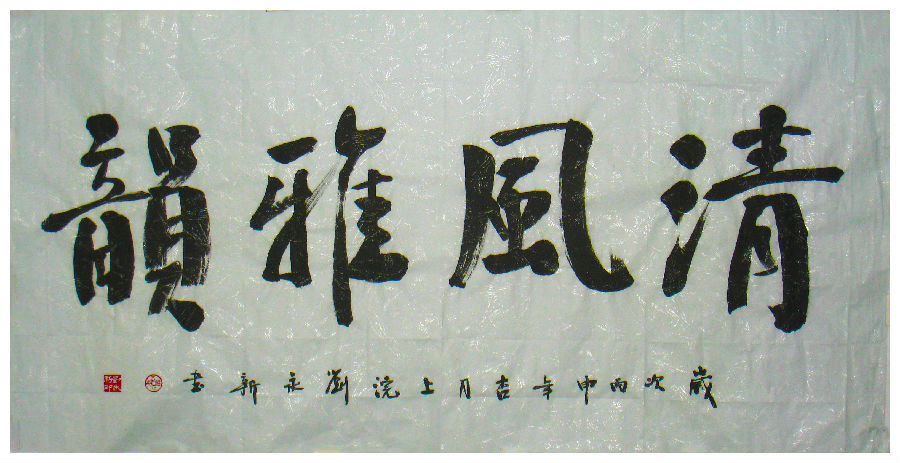 清風雅韻
歲次丙申年吉月上浣劉永新書